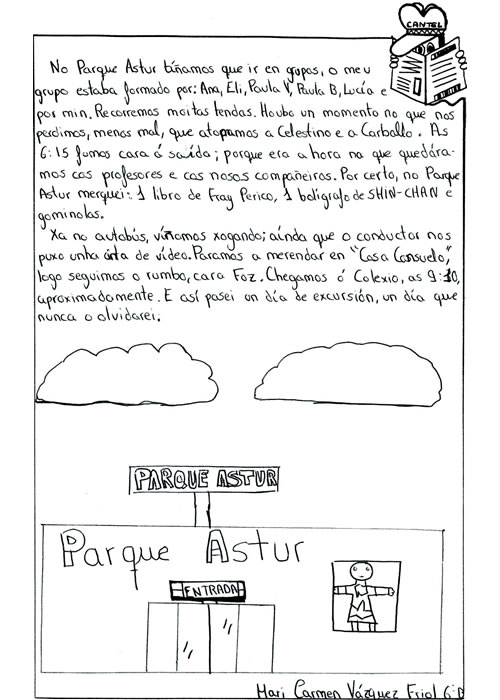 CANTEL
No Parque Astur tiñamos que ir en grupos, o meu
grupo estaba formado por: Ana, Eli, Paula V, Paula B, Lucía e
por min. Recorremos moitas tendas. Houbo un momento no que nos
perdimos, menos mal, que atopamos a Celestino e a Carballo. Ás
6:15 fomos cara á saída; porque era a hora na que quedára-
mos cos profesores e cos nosos compañeiros. Por certo, no Parque
Astur merquei: 1 libro de Fray Perico, 1 bolígrafo de SHIN-CHAN e
gominolas.
Xa no autobús, viñamos xogando; aínda que o conductor nos
puxo unha cinta de vídeo. Paramos a merendar en "Casa Consuelo",
logo seguimos o rumbo, cara Foz. Chegamos ó Colexio, as 9:30,
aproximadamente. E así pasei un día de excursión, un día que
nunca o olvidarei.
PARQUE ASTUR
Parque Astur
ENTRADA
Mari Carmen Vázquez Friol 6º